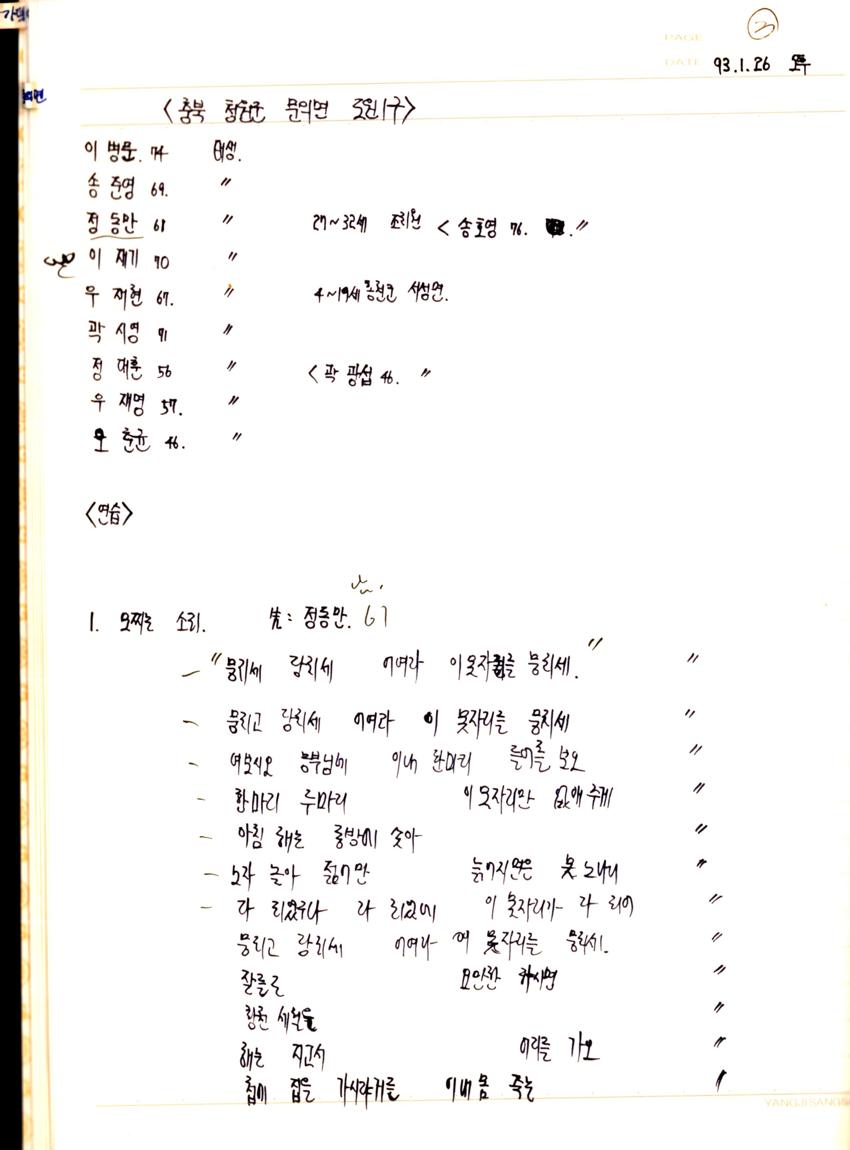 PAGE 3
DATE 93.1.26 오후
<충북 청원군 문의면 1구>
이 병문. 74 태생.
송 준영 69. "
정 동만 61 " 27~32세 조리원 < 송호영 76. "
이 재기 70 "
우 재현 67. " 4~19세
곽 시영 71 "
정 대훈 56 " < 곽 광섭 46. "
우 재명 57. "
오 춘균 46. "
<연습>
1. 모찌는 소리. 先: 정동만. 61
— "뭉리세 당리세 이여라 이 못자리를 뭉리세." "
— 뭉리고 당리세 이여라 이 못자리를 뭉치세 "
— 여보시오 농부님에 이내 한마리 들어를 보오 "
— 한마리 두마리 이 못자리만 없애 주게 "
— 아침 해는 동방에 솟아 "
— 노자 놀아 젊어만 늙어지면은 못 노나니 "
— 다 리었구나 다 리었에 이 못자리가 다 리어 "
뭉리고 당리세 이여라 이 못자리를 뭉리세. "
잘를르 하시면 "
황천 "
해는 지고서 어리를 가오 "
첩에 집을 가시랴거를 이내 몸 죽는 "
YANGJISANGSA